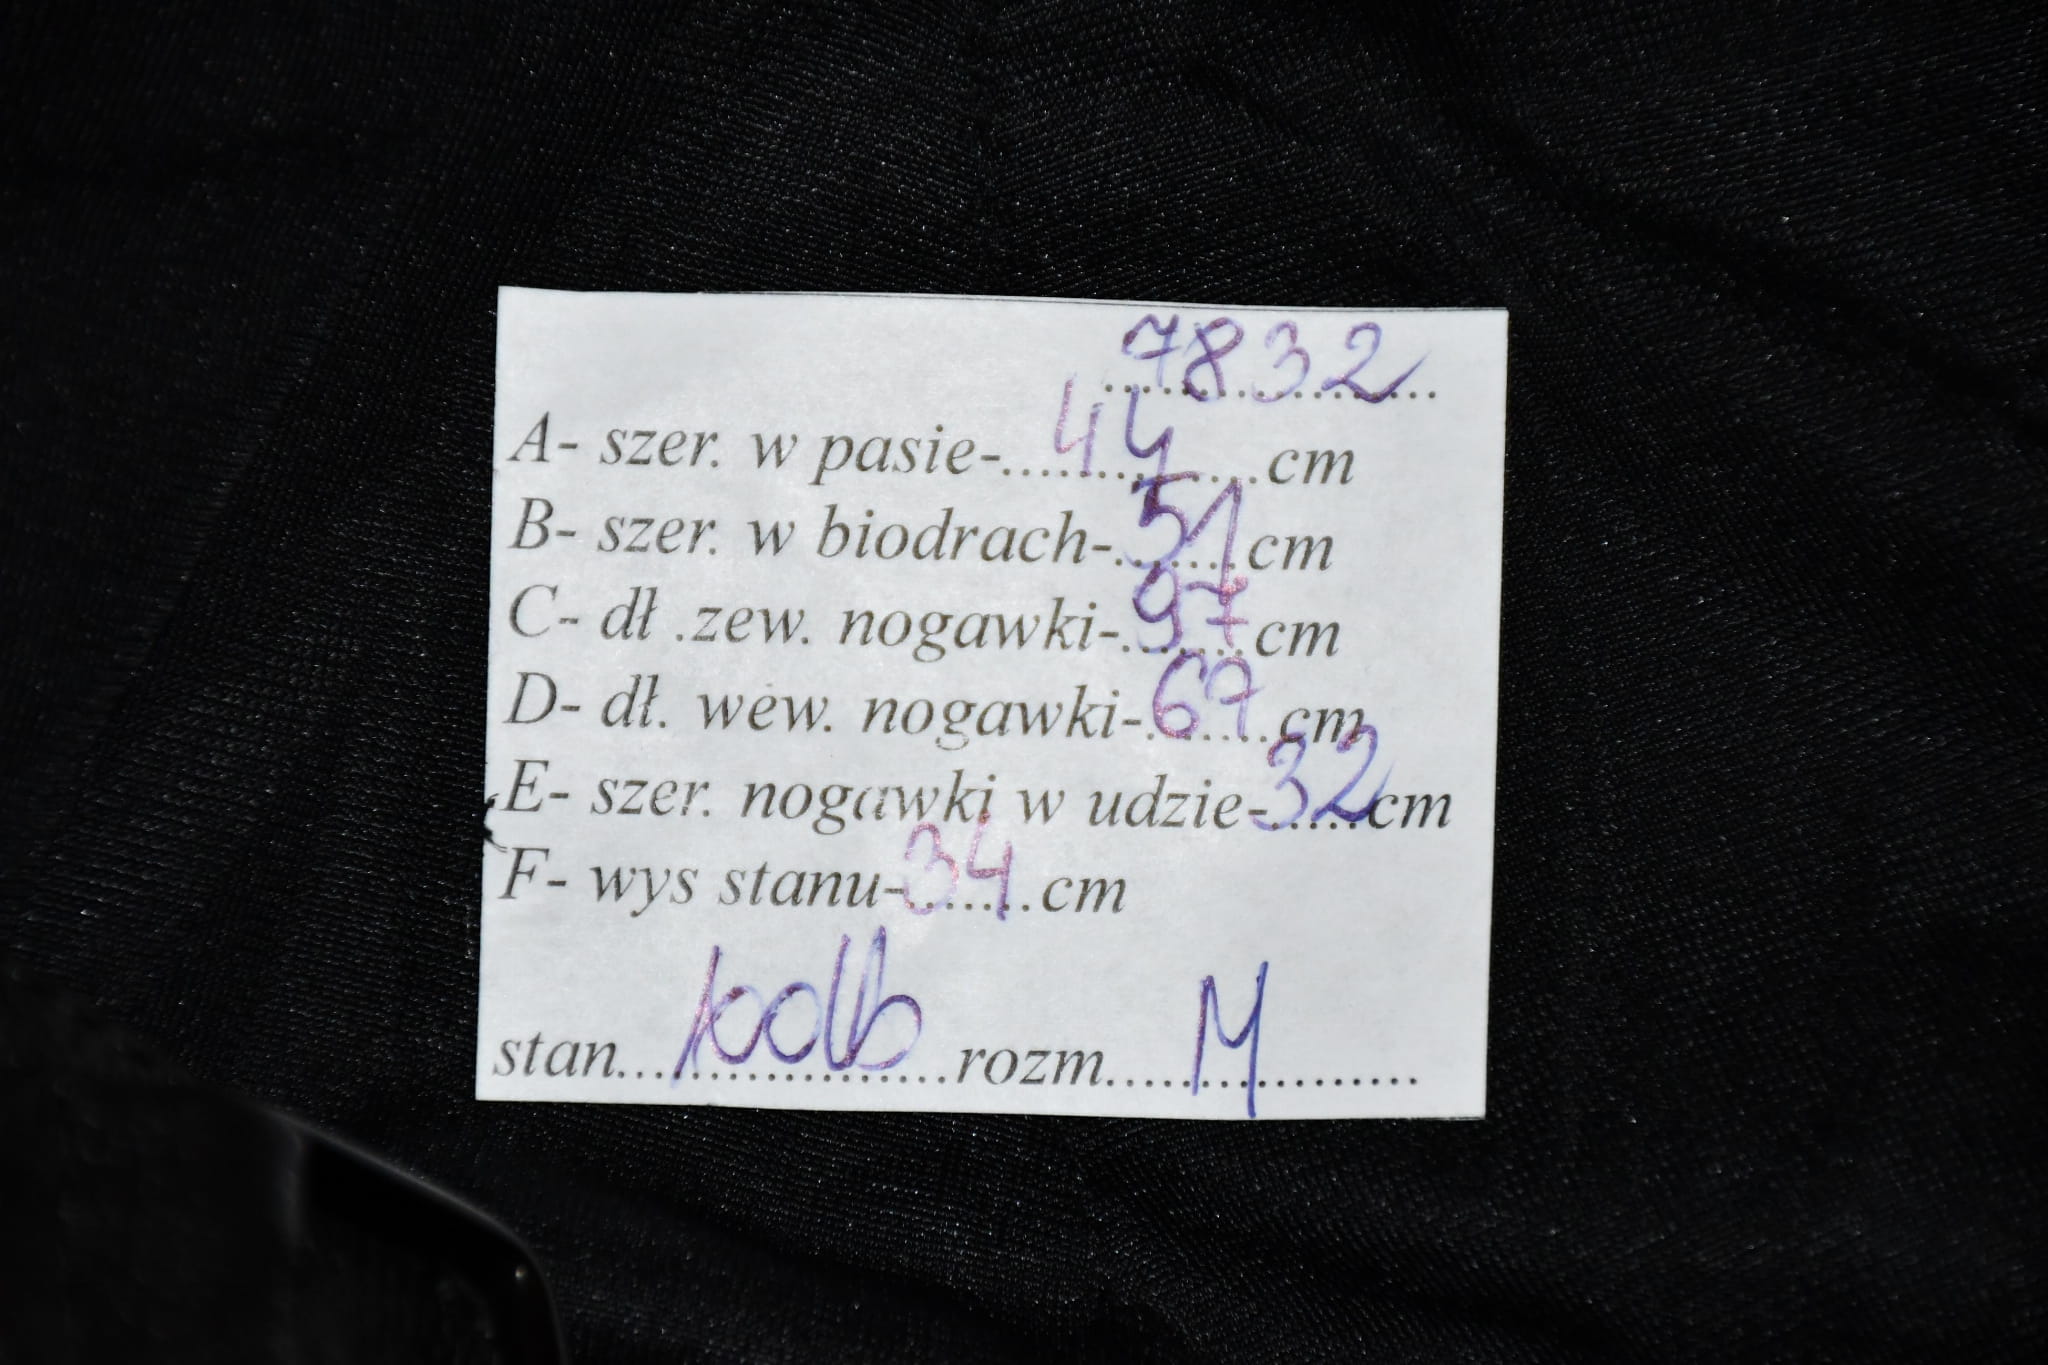 7832
A- szer. w pasie-....44....cm
B- szer. w biodrach-..51..cm
C- dł .zew. nogawki-..97..cm
D- dł. wew. nogawki-..67..cm
E- szer. nogawki w udzie-..32..cm
F- wys stanu-..34..cm
stan.... ....rozm....M....